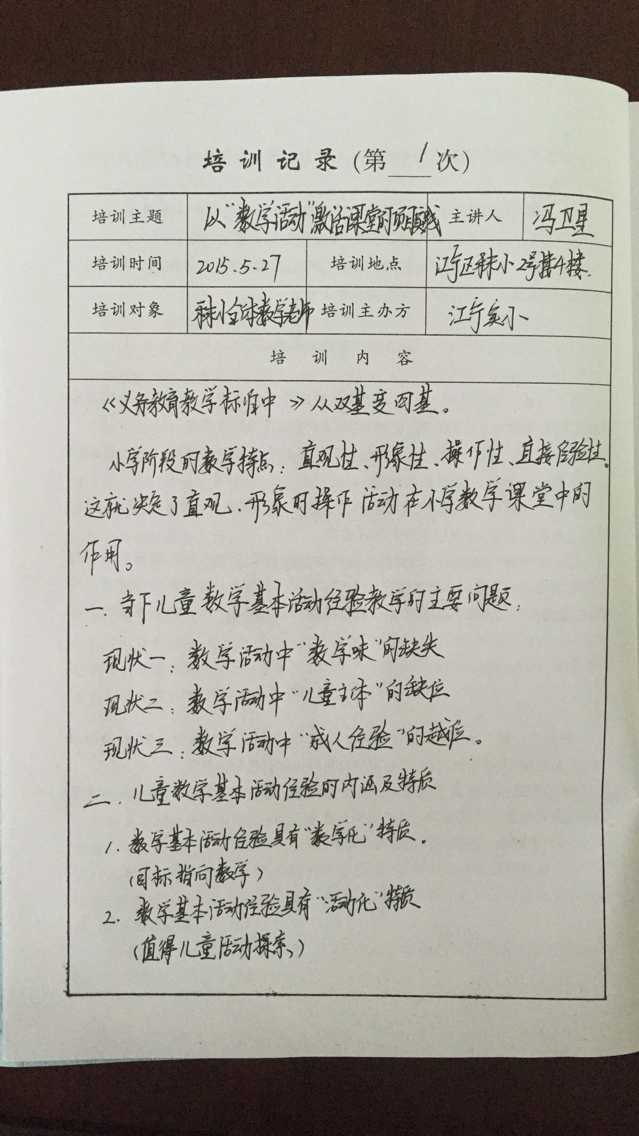 培训记录(第 1 次)
培训主题 以"数学活动"激活课堂的 主讲人 冯卫星
培训时间 2015.5.27 培训地点 江宁区秣小2号楼4楼.
培训对象 秣小全体数学老师 培训主办方 江宁实小
培训内容
《义务教育数学标准中》从双基变四基。
小学阶段的数学特点:直观性、形象性、操作性、直接经验性。
这就决定了直观、形象的操作活动在小学数学课堂中的
作用。
一.当下儿童数学基本活动经验教学的主要问题:
现状一:数学活动中"数学味"的缺失
现状二:数学活动中"儿童主体"的缺位
现状三:数学活动中"成人经验"的越位。
二.儿童数学基本活动经验的内涵及特质
1.数学基本活动经验具有"数学化"特质.
(目标指向数学)
2.数学基本活动经验具有"活动化"特质
(值得儿童活动探索)